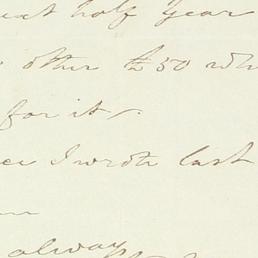 next half Year
other £50 whi
for it.
ce I wrote last
always